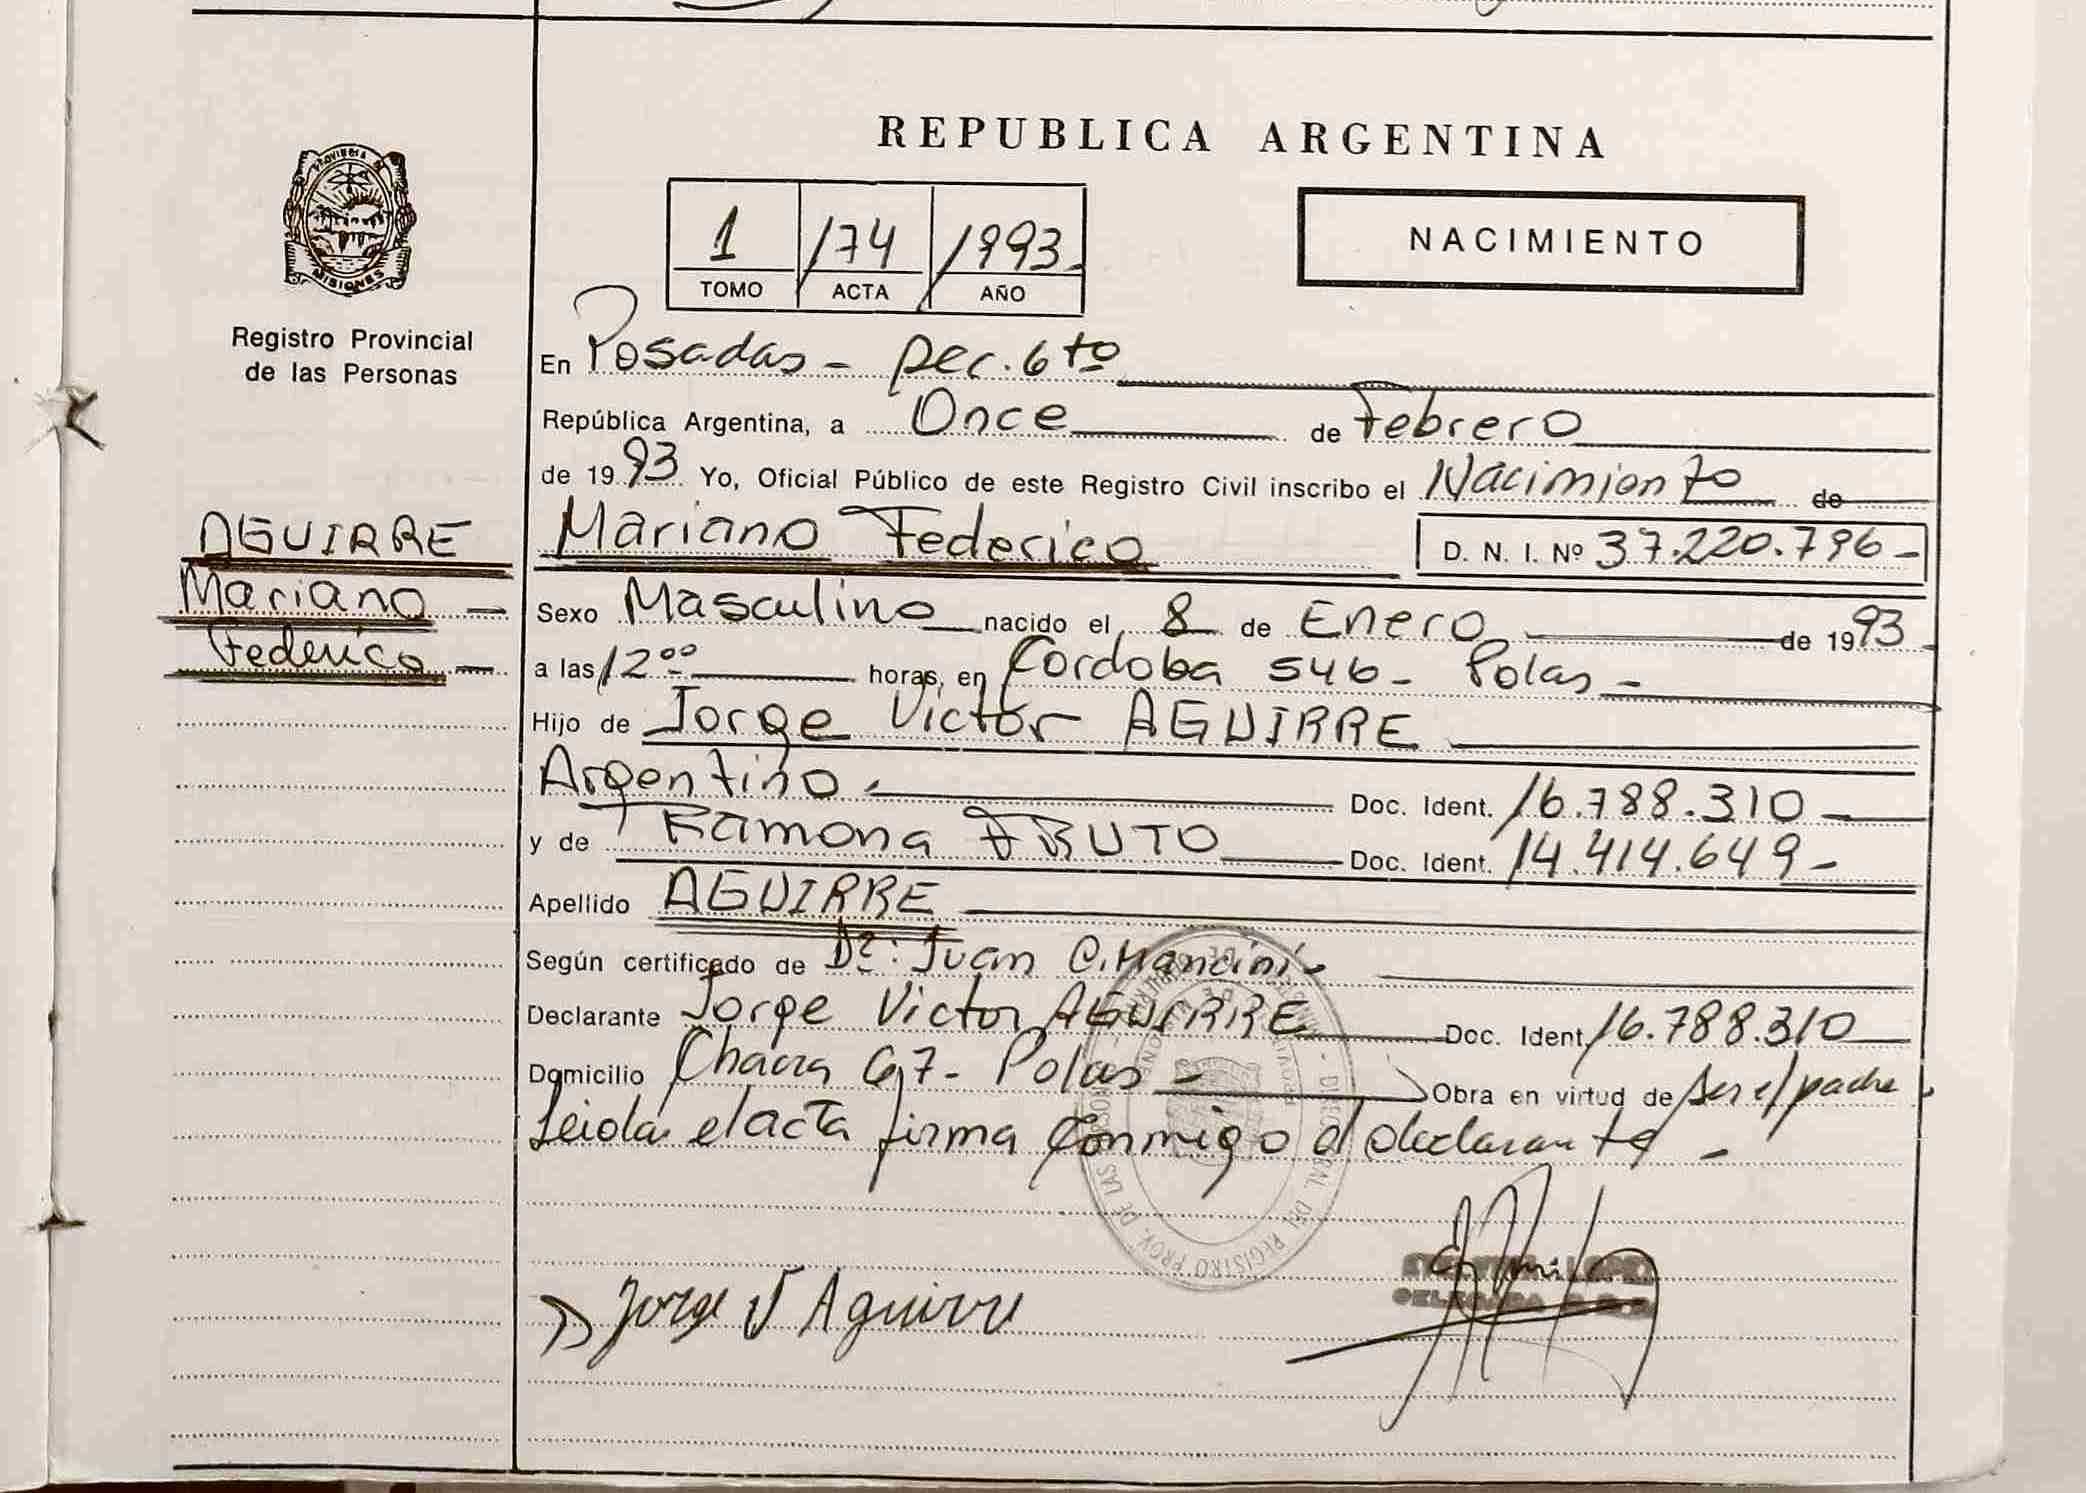 REPUBLICA ARGENTINA
PROVINCIA DE
MISIONES
Registro Provincial
de las Personas
1 /74 /1993
TOMO ACTA AÑO
NACIMIENTO
En Posadas - Dec. 6to
República Argentina, a Once de Febrero
de 1993 Yo, Oficial Público de este Registro Civil inscribo el Nacimiento de
AGUIRRE
Mariano
Federico
Mariano Federico D. N. I. Nº 37.220.796-
Sexo Masculino nacido el 8 de Enero de 1993
a las 12 00 horas, en Córdoba 546 - Polas -
Hijo de Jorge Victor AGUIRRE
Argentino Doc. Ident. 16.788.310
y de Ramona FRUTO Doc. Ident. 14.414.649-
Apellido AGUIRRE
Según certificado de Dr: Juan C. Mancini -
Declarante Jorge Victor AGUIRRE Doc. Ident. 16.788.310
Domicilio Chacra 67 - Polas - Obra en virtud de ser el padre
Leida el acta firma conmigo el declarante -
DE LAS DIRECCION GRAL DEL REGISTRO PROV.
Jorge V Aguirre